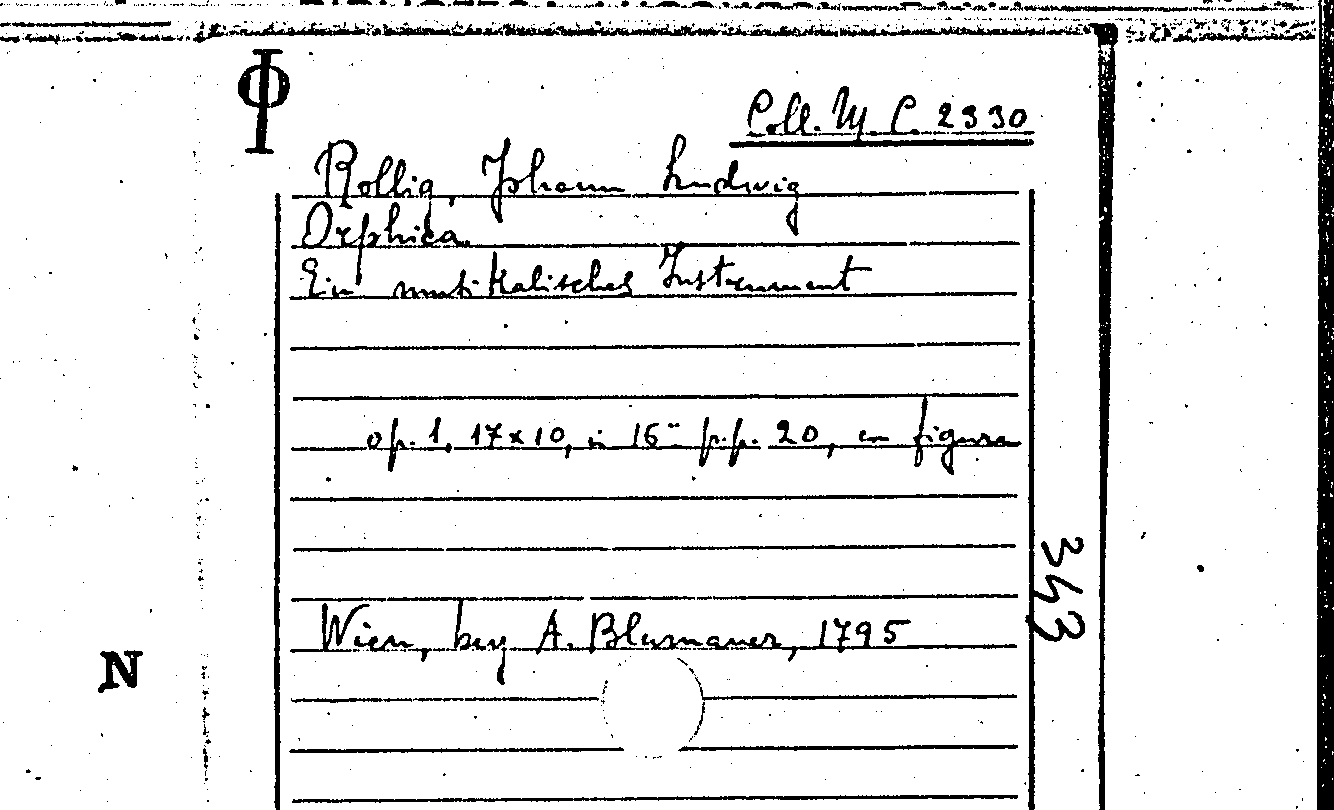 Φ
Coll. M. C. 2330
Rollig, Johann Ludwig
Orphica.
Ein musikalisches Instrument
op. 1, 17x10, in 16° p.p. 20, con figura
343
Wien, bey A. Blumauer, 1795
N